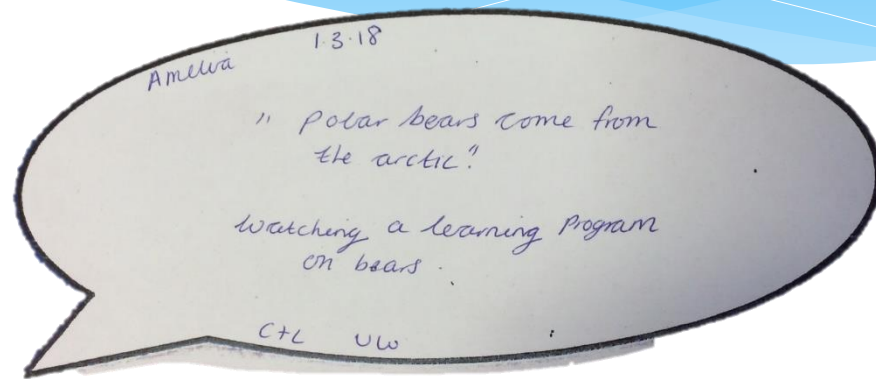 Amelia 1.3.18
" Polar bears come from
the arctic."
Watching a learning program
on bears.
C+L UW